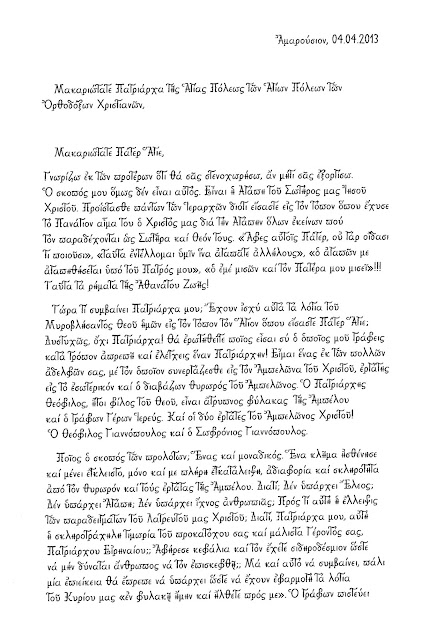 Ἀμαρούσιον, 04.04.2013
Μακαριώτατε Πατριάρχα τῆς Ἁγίας Πόλεως τῶν Ἁγίων Πόλεων τῶν
Ὀρθοδόξων Χριστιανῶν,
Μακαριώτατε Πάτερ Ἅγιε,
Γνωρίζω ἐκ τῶν προτέρων ὅτι θά σᾶς στενοχωρήσω, ἄν μήτι σᾶς ἐξοργίσω.
Ὁ σκοπός μου ὅμως δέν εἶναι αὐτός. Εἶναι ἡ Ἀγάπη τοῦ Σωτῆρος μας Ἰησοῦ
Χριστοῦ. Προίστασθε πάντων τῶν Ἱεραρχῶν διότι εἴσαστε εἰς τόν τόπον ὅπου ἔχυσε
τό Πανάγιον αἷμα του ὁ Χριστός μας διά τήν Ἀγάπην ὅλων ἐκείνων πού
τόν παραδέχονται ὡς Σωτῆρα καί Θεόν τους. «Ἄφες αὐτοῖς Πάτερ, οὐ γάρ οἴδασι
τί ποιοῦσι», «ταῦτα ἐντέλλομαι ὑμῖν ἵνα ἀγαπᾶτε ἀλλήλους», «ὁ ἀγαπῶν με
ἀγαπηθήσεται ὑπό τοῦ Πατρός μου», «ὁ ἐμέ μισῶν καί τόν Πατέρα μου μισεῖ»!!!
Ταῦτα τά ρήματα τῆς Ἀθανάτου Ζωῆς!
Τώρα τί συμβαίνει Πατριάρχα μου; Ἔχουν ἰσχύ αὐτά τά λόγια τοῦ
Μυροβλήσαντος Θεοῦ ἡμῶν εἰς τόν τόπον τόν Ἅγιον ὅπου εἴσαστε Πάτερ Ἅγιε;
Δυστυχῶς, ὄχι Πατριάρχα! Θά ἐρωτηθεῖτε ποῖος εἶσαι σύ ὁ ὁποῖος μοῦ γράφεις
κατά τρόπον ἀπρεπῆ καί ἐλέγχεις ἕναν Πατριάρχην! Εἶμαι ἕνας ἐκ τῶν πολλῶν
ἀδελφῶν σας, μέ τόν ὁποῖον συνεργάζεσθε εἰς τόν Ἀμπελῶνα τοῦ Χριστοῦ, ἐργάτης
εἰς τό ἐσωτερικόν καί ὁ διαβάζων θυρωρός τοῦ Ἀμπελῶνος. Ὁ Πατριάρχης
Θεόφιλος, ἤτοι φίλος τοῦ Θεοῦ, εἶναι ἄγρυπνος φύλακας τῆς Ἀμπέλου
καί ὁ γράφων Γέρων Ἱερεύς. Καί οἱ δύο ἐργάτες τοῦ Ἀμπελῶνος Χριστοῦ!
Ὁ Θεόφιλος Γιαννόπουλος καί ὁ Σωφρόνιος Γιαννόπουλος.
Ποῖος ὁ σκοπός τῶν προλόγων; Ἕνας καί μοναδικός. Ἕνα κλῆμα ἠσθένησε
καί μένει ἔγκλειστο, μόνο καί με πλήρη ἐγκατάλειψη, ἀδιαφορία καί σκληρότητα
ἀπό τόν θυρωρόν καί τούς ἐργάτας τῆς Ἀμπέλου. Διατί; Δέν ὑπάρχει Ἔλεος;
Δέν ὑπάρχει Ἀγάπη; Δέν ὑπάρχει ἴχνος ἀνθρωπιᾶς; Πρός τί αὐτή ἡ ἔλλειψις
τῶν παραδειγμάτων τοῦ λατρευτοῦ μας Χριστοῦ; Διατί, Πατριάρχα μου, αὐτή
ἡ σκληροτράχηλη τιμωρία τοῦ προκατόχου σας καί μάλιστα Γέροντός σας,
Πατριάρχου Εἰρηναίου;; Ἀφῄρεσε κεφάλια καί τόν ἔχετε σιδηροδέσμιον ὥστε
νά μήν δύναται ἄνθρωπος νά τόν ἐπισκεφθῇ;; Μά καί αὐτό νά συμβαίνει, πάλι
μία ἐπιείκεια θά ἔπρεπε νά ὑπάρχει ὥστε νά ἔχουν ἐφαρμογή τά λόγια
τοῦ Κυρίου μας «ἐν φυλακῇ ἤμην καί ἤλθετε πρός με». Ὁ γράφων πιστεύει